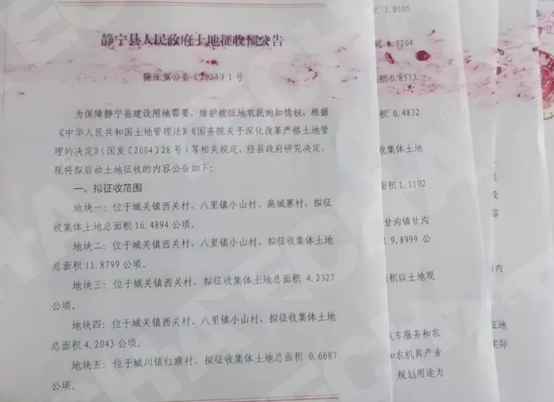 静宁县人民政府土地征收预公告
静征预公告〔2023〕1号
为保障静宁县建设用地需要，维护被征地农民的知情权，根据
《中华人民共和国土地管理法》《国务院关于深化改革严格土地管
理的决定》（国发〔2004〕28号）等相关规定，经县政府研究决定，
现将拟启动土地征收的内容公告如下：
一、拟征收范围
地块一：位于城关镇西关村、八里镇小山村、高城寨村，拟征
收集体土地总面积 16.4894 公顷。
地块二：位于城关镇西关村、八里镇小山村，拟征收集体土地
总面积 11.8799 公顷。
地块三：位于城关镇西关村，拟征收集体土地总面积 4.2327
公顷。
地块四：位于城关镇西关村、八里镇小山村，拟征收集体土地
总面积 4.2043 公顷。
地块五：位于城川镇红旗村，拟征收集体土地总面积 0.6687
公顷。
3.0505
.9204
0.8573
积 0.4832
收集体土地
积 1.1102
甘沟镇甘沟
9.8999 公
面积以土地现
汽车服务和农
和农机具产业
规划用途为
围内
征地
实际